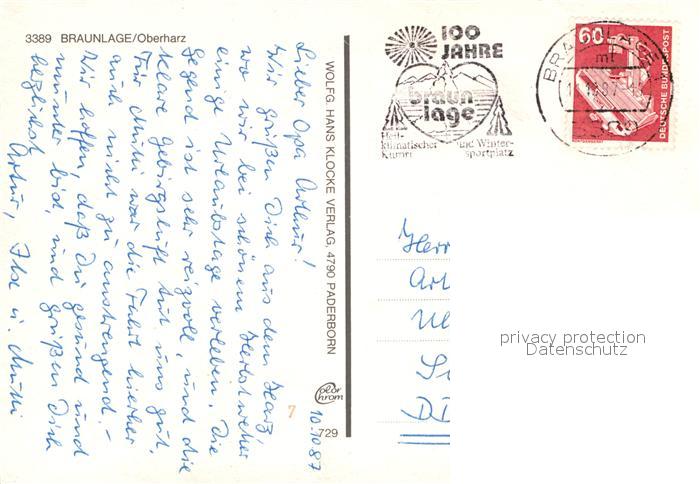 3389 BRAUNLAGE/Oberharz
Lieber Opa Arthur!
Wir grüßen Dich aus dem Harz,
wo wir bei schönem Herbstwetter
einige Urlaubstage verleben. Die
Gegend ist sehr reizvoll, und die
klare Gebirgsluft tut uns gut.
Für Mutti war die Fahrt hierher
auch nicht zu anstrengend.-
Wir hoffen, daß Du gesund und
munter bist, und grüßen Dich
herzlichst
Artur, Ilse u. Mutti
10.10.87
WOLFG. HANS KLOCKE VERLAG, 4790 PADERBORN
Color
Chrom
7
729
100
JAHRE
braun
lage
Heil-
klimatischer
Kurort
und Winter-
sportplatz
BRAUNLAGE
mt
60
DEUTSCHE BUNDESPOST
Herr
Art
privacy protection
Datenschutz